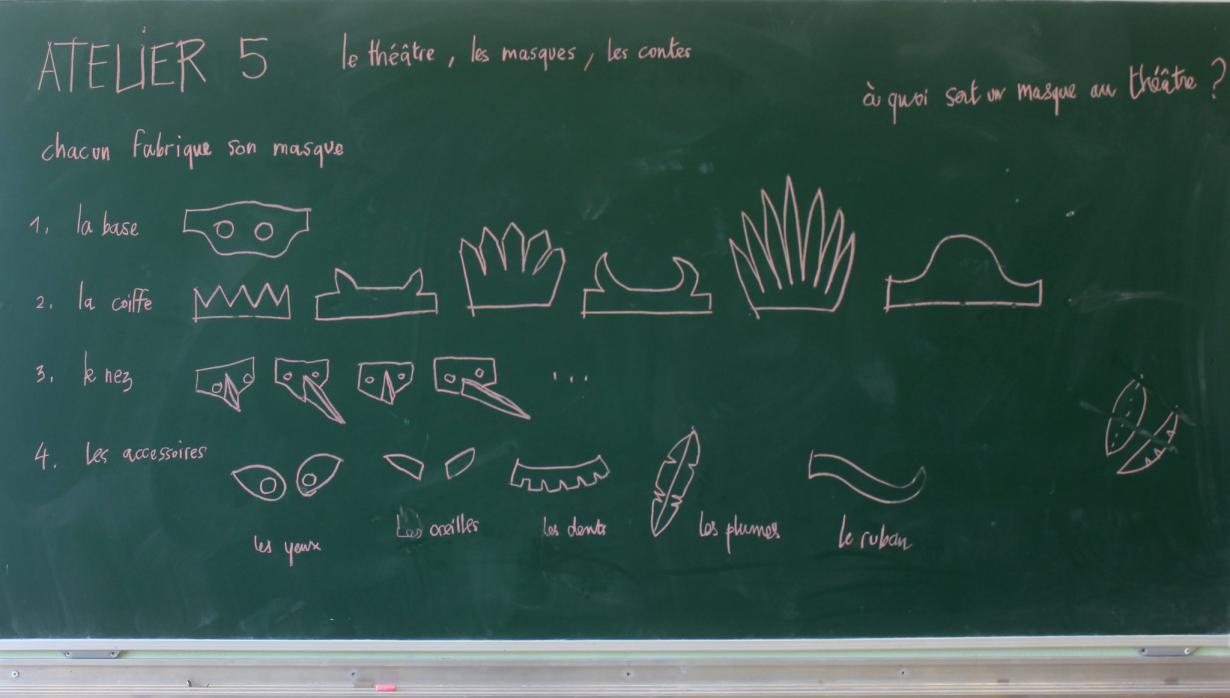 ATELIER 5 le théâtre, les masques, les contes
à quoi sert un masque au théâtre ?
chacun fabrique son masque
1. la base
2. la coiffe
3. le nez
...
4. les accessoires
les yeux
les oreilles
les dents
les plumes
le ruban